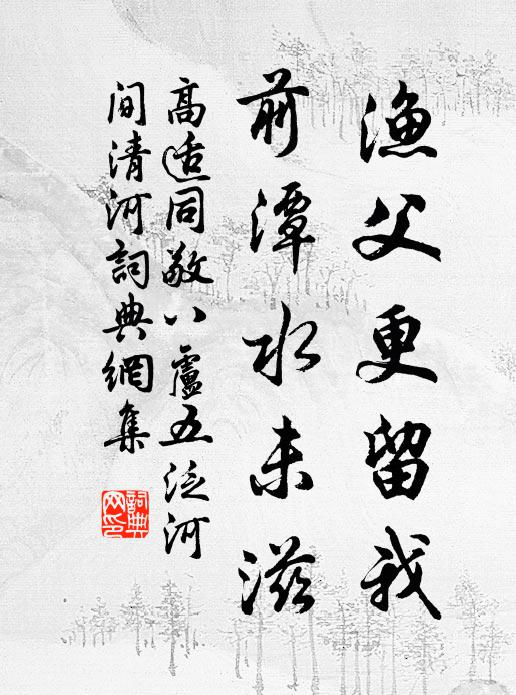 漁父更留我
前潭水未滋
高适同敬八盧五泛河
间清河詞典網集
詞典
网印